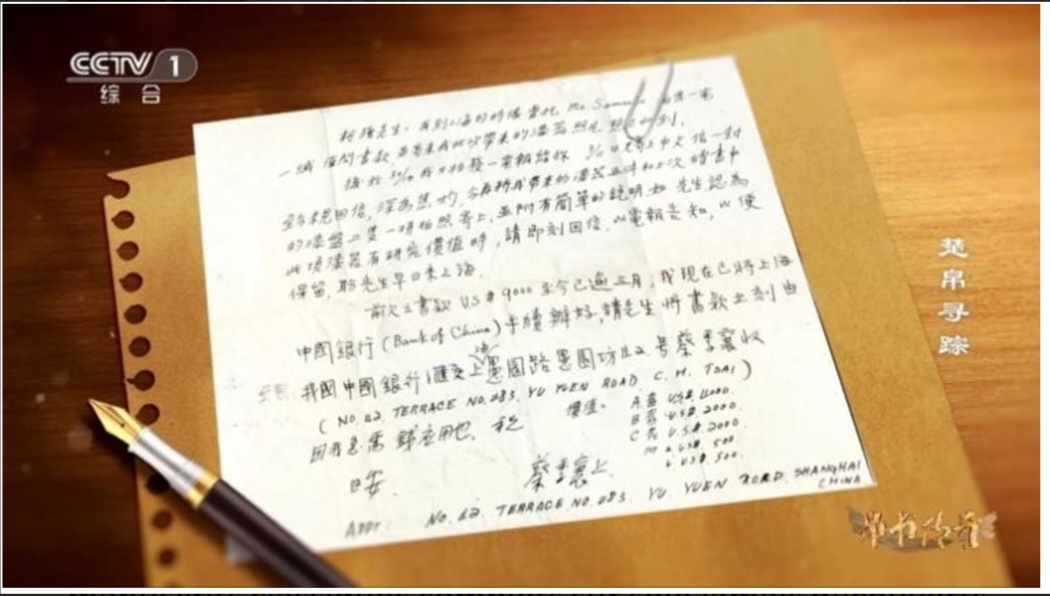 CCTV 1
综合
柯強先生：我到上海的時候曾托 Mr Samuel
一城 信問書款
後於 我又拍發一電報給你 上中文信一封
至今未見回信，深為焦灼，今再將我帶來的漆器五件和上次 書中
的漆盤二隻一併拍照寄上，並附有簡單的說明，如 先生認為
此項漆器有研究價值時，請即刻回信，以電報告知，以便
保留，盼先生早日來上海．
前欠之書款 U.S.$ 9000 至今已逾三月，我現在已將上海
中國銀行 (Bank of China) 手續辦好，請先生將書款立刻由
我國中國銀行匯交上海愚園路愚園坊42号蔡季襄收
( NO. 42 TERRACE NO. 483. YU YUEN ROAD. C. H. TSAI )
因我急需錢應用也．祝
價值．
A 蓋 US$. 4000.
B 蓋 U.S$. 2000.
C 蓋 U.S$. 2000.
a. US$. 500.
b. US$. 500.
日安．
蔡季襄上．
ADDR: NO. 42. TERRACE NO. 483. YU YUEN ROAD. SHANGHAI
CHINA
楚帛寻踪
帛书传奇